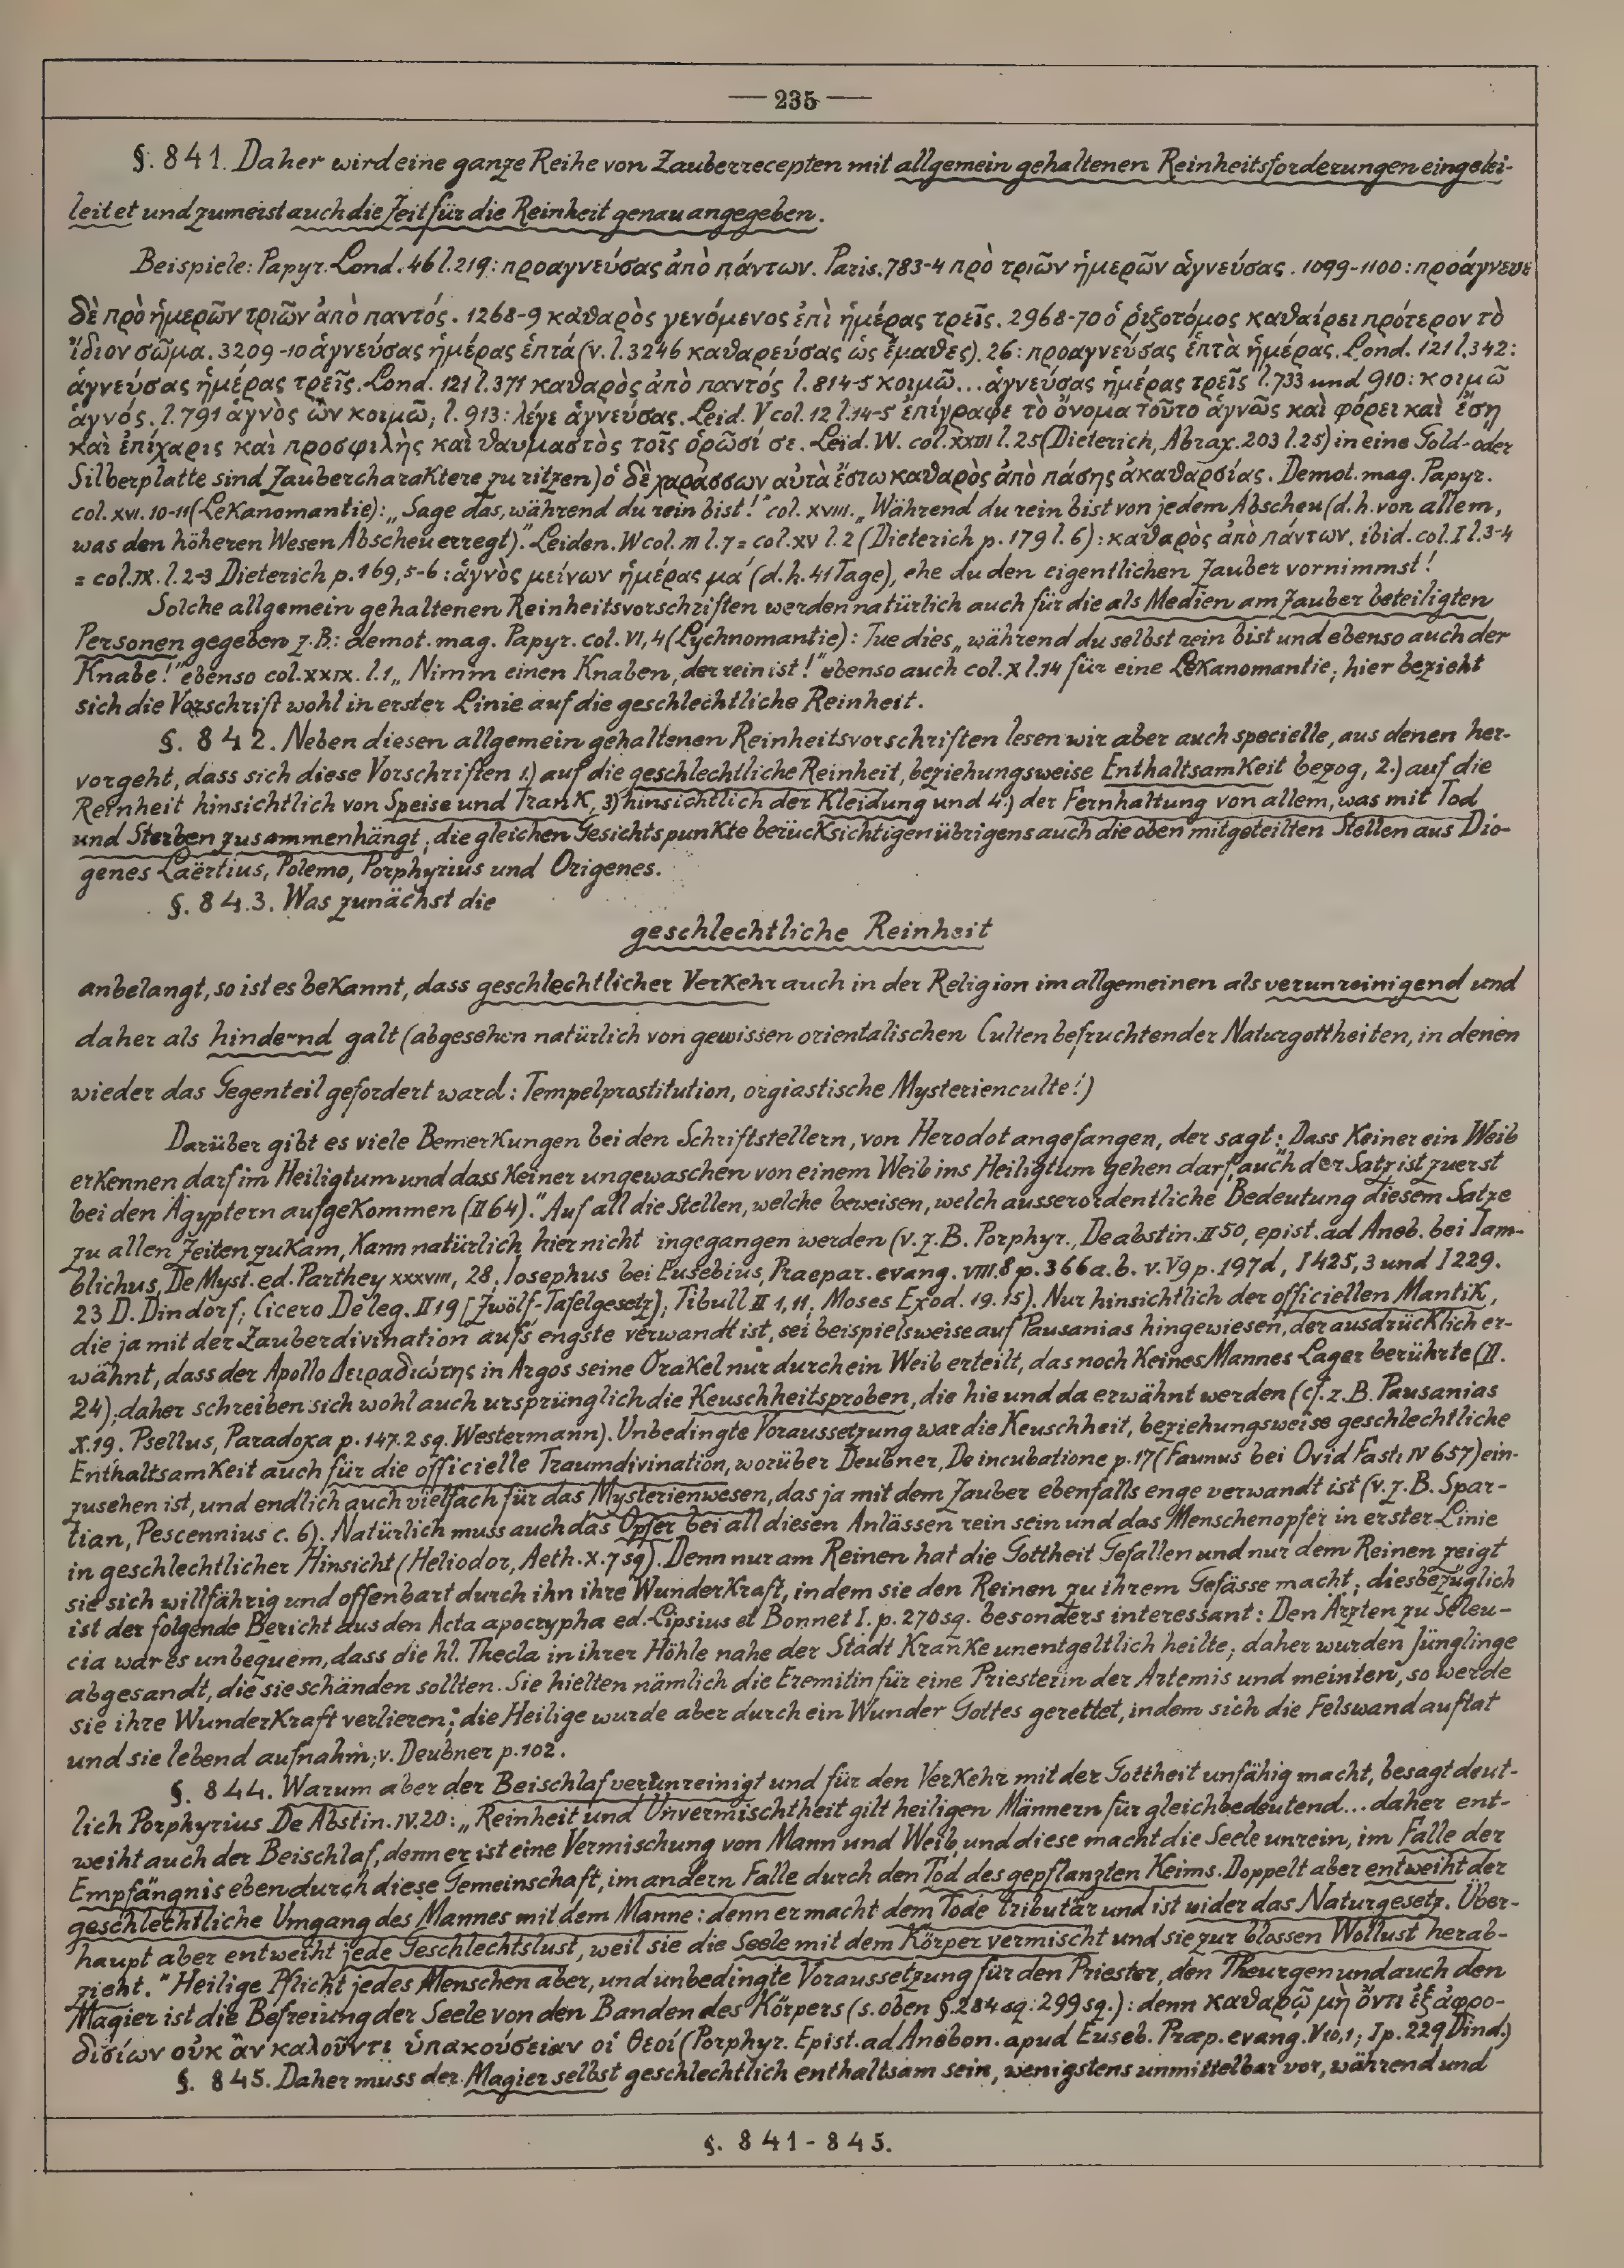 — 235 —
§. 841. Daher wird eine ganze Reihe von Zauberrecepten mit allgemein gehaltenen Reinheitsforderungen eingelei-
leitet und zumeist auch die Zeit für die Reinheit genau angegeben.
Beispiele: Papyr. Lond. 46 l. 219: προαγνεύσας ἀπὸ πάντων. Paris. 783-4 πρὸ τριῶν ἡμερῶν ἁγνεύσας. 1099-1100: προάγνευε
δὲ πρὸ ἡμερῶν τριῶν ἀπὸ παντός. 1268-9 καθαρὸς γενόμενος ἐπὶ ἡμέρας τρεῖς. 2968-70 ὁ ῥιζοτόμος καθαίρει πρότερον τὸ
ἴδιον σῶμα. 3209-10 ἁγνεύσας ἡμέρας ἑπτά (v. l. 3246 καθαρεύσας ὡς ἔμαθες). 26: προαγνεύσας ἑπτὰ ἡμέρας. Lond. 121 l. 342:
ἁγνεύσας ἡμέρας τρεῖς. Lond. 121 l. 371 καθαρὸς ἀπὸ παντός l. 814-5 κοιμῶ... ἁγνεύσας ἡμέρας τρεῖς l. 733 und 910: κοιμῶ
ἁγνός. l. 791 ἁγνὸς ὢν κοιμῶ; l. 913: λέγε ἁγνεύσας. Leid. V col. 12 l. 14-5 ἐπίγραφε τὸ ὄνομα τοῦτο ἁγνῶς καὶ φόρει καὶ ἔσῃ
καὶ ἐπίχαρις καὶ προσφιλὴς καὶ θαυμαστὸς τοῖς ὁρῶσί σε. Leid. W. col. XXIII l. 25 (Dieterich, Abrax. 203 l. 25) in eine Gold- oder
Silberplatte sind Zaubercharaktere zu ritzen) ὁ δὲ χαράσσων αὐτὰ ἔστω καθαρὸς ἀπὸ πάσης ἀκαθαρσίας. Demot. mag. Papyr.
col. XVI. 10-11 (Lekanomantie): „Sage das, während du rein bist!" col. XVIII. „Während du rein bist von jedem Abscheu (d. h. von allem,
was den höheren Wesen Abscheu erregt)." Leiden. W col. III l. 7 = col. XV l. 2 (Dieterich p. 179 l. 6): καθαρὸς ἀπὸ πάντων. ibid. col. I l. 3-4
= col. IX. l. 2-3 Dieterich p. 169, 5-6: ἁγνὸς μείνων ἡμέρας μα΄ (d. h. 41 Tage), ehe du den eigentlichen Zauber vornimmst!
Solche allgemein gehaltenen Reinheitsvorschriften werden natürlich auch für die als Medien am Zauber beteiligten
Personen gegeben z. B.: demot. mag. Papyr. col. VI, 4 (Lychnomantie): Tue dies „während du selbst rein bist und ebenso auch der
Knabe!" ebenso col. XXIX. l. 1 „Nimm einen Knaben, der rein ist!" ebenso auch col. X l. 14 für eine Lekanomantie; hier bezieht
sich die Vorschrift wohl in erster Linie auf die geschlechtliche Reinheit.
§. 842. Neben diesen allgemein gehaltenen Reinheitsvorschriften lesen wir aber auch specielle, aus denen her-
vorgeht, dass sich diese Vorschriften 1.) auf die geschlechtliche Reinheit, beziehungsweise Enthaltsamkeit bezog, 2.) auf die
Reinheit hinsichtlich von Speise und Trank, 3) hinsichtlich der Kleidung und 4.) der Fernhaltung von allem, was mit Tod
und Sterben zusammenhängt; die gleichen Gesichtspunkte berücksichtigen übrigens auch die oben mitgeteilten Stellen aus Dio-
genes Laërtius, Polemo, Porphyrius und Origenes.
§. 843. Was zunächst die
geschlechtliche Reinheit
anbelangt, so ist es bekannt, dass geschlechtlicher Verkehr auch in der Religion im allgemeinen als verunreinigend und
daher als hindernd galt (abgesehen natürlich von gewissen orientalischen Culten befruchtender Naturgottheiten, in denen
wieder das Gegenteil gefordert ward: Tempelprostitution, orgiastische Mysterienculte!)
Darüber gibt es viele Bemerkungen bei den Schriftstellern, von Herodot angefangen, der sagt: Dass keiner ein Weib
erkennen darf im Heiligtum und dass keiner ungewaschen von einem Weib ins Heiligtum gehen darf, auch der Satz ist zuerst
bei den Ägyptern aufgekommen (II 64)." Auf all die Stellen, welche beweisen, welch ausserordentliche Bedeutung diesem Satze
zu allen Zeiten zukam, kann natürlich hier nicht ingegangen werden (v. z. B. Porphyr., De abstin. II 50, epist. ad Aneb. bei Iam-
blichus, De Myst. ed. Parthey XXXVIII, 28. Iosephus bei Eusebius, Praepar. evang. VIII. 8 p. 366 a. b. v. V 9 p. 197 d, I 425, 3 und I 229.
23 D. Dindorf; Cicero De leg. II 19 [Zwölf-Tafelgesetz); Tibull II 1, 11. Moses Exod. 19. 15). Nur hinsichtlich der officiellen Mantik,
die ja mit der Zauberdivination aufs engste verwandt ist, sei beispielsweise auf Pausanias hingewiesen, der ausdrücklich er-
wähnt, dass der Apollo Δειραδιώτης in Argos seine Orakel nur durch ein Weib erteilt, das noch keines Mannes Lager berührte (II.
24); daher schreiben sich wohl auch ursprünglich die Keuschheitsproben, die hie und da erwähnt werden (cf. z. B. Pausanias
X. 19. Psellus, Paradoxa p. 147. 2 sg. Westermann). Unbedingte Voraussetzung war die Keuschheit, beziehungsweise geschlechtliche
Enthaltsamkeit auch für die officielle Traumdivination, worüber Deubner, De incubatione p. 17 (Faunus bei Ovid Fasti IV 657) ein-
zusehen ist, und endlich auch vielfach für das Mysterienwesen, das ja mit dem Zauber ebenfalls enge verwandt ist (v. z. B. Spar-
tian, Pescennius c. 6). Natürlich muss auch das Opfer bei all diesen Anlässen rein sein und das Menschenopfer in erster Linie
in geschlechtlicher Hinsicht (Heliodor, Aeth. X. 7 sg). Denn nur am Reinen hat die Gottheit Gefallen und nur dem Reinen zeigt
sie sich willfährig und offenbart durch ihn ihre Wunderkraft, indem sie den Reinen zu ihrem Gefässe macht; diesbezüglich
ist der folgende Bericht aus den Acta apocrypha ed. Lipsius et Bonnet I. p. 270 sq. besonders interessant: Den Ärzten zu Seleu-
cia war es unbequem, dass die hl. Thecla in ihrer Höhle nahe der Stadt Kranke unentgeltlich heilte; daher wurden Jünglinge
abgesandt, die sie schänden sollten. Sie hielten nämlich die Eremitin für eine Priesterin der Artemis und meinten, so werde
sie ihre Wunderkraft verlieren; die Heilige wurde aber durch ein Wunder Gottes gerettet, indem sich die Felswand auftat
und sie lebend aufnahm; v. Deubner p. 102.
§. 844. Warum aber der Beischlaf verunreinigt und für den Verkehr mit der Gottheit unfähig macht, besagt deut-
lich Porphyrius De Abstin. IV. 20: „Reinheit und Unvermischtheit gilt heiligen Männern für gleichbedeutend... daher ent-
weiht auch der Beischlaf, denn er ist eine Vermischung von Mann und Weib, und diese macht die Seele unrein, im Falle der
Empfängnis eben durch diese Gemeinschaft, im andern Falle durch den Tod des gepflanzten Keims. Doppelt aber entweiht der
geschlechtliche Umgang des Mannes mit dem Manne: denn er macht dem Tode tributär und ist wider das Naturgesetz. Über-
haupt aber entweiht jede Geschlechtslust, weil sie die Seele mit dem Körper vermischt und sie zur blossen Wollust herab-
zieht." Heilige Pflicht jedes Menschen aber, und unbedingte Voraussetzung für den Priester, den Theurgen und auch den
Magier ist die Befreiung der Seele von den Banden des Körpers (s. oben §. 284 sq: 299 sq.): denn καθαρῷ μὴ ὄντι ἐξ ἀφρο-
δισίων οὐκ ἂν καλοῦντι ὑπακούσειαν οἱ θεοί (Porphyr. Epist. ad Anebon. apud Euseb. Præp. evang. V 10, 1; I p. 229 Dind.)
§. 845. Daher muss der Magier selbst geschlechtlich enthaltsam sein, wenigstens unmittelbar vor, während und
§. 841-845.